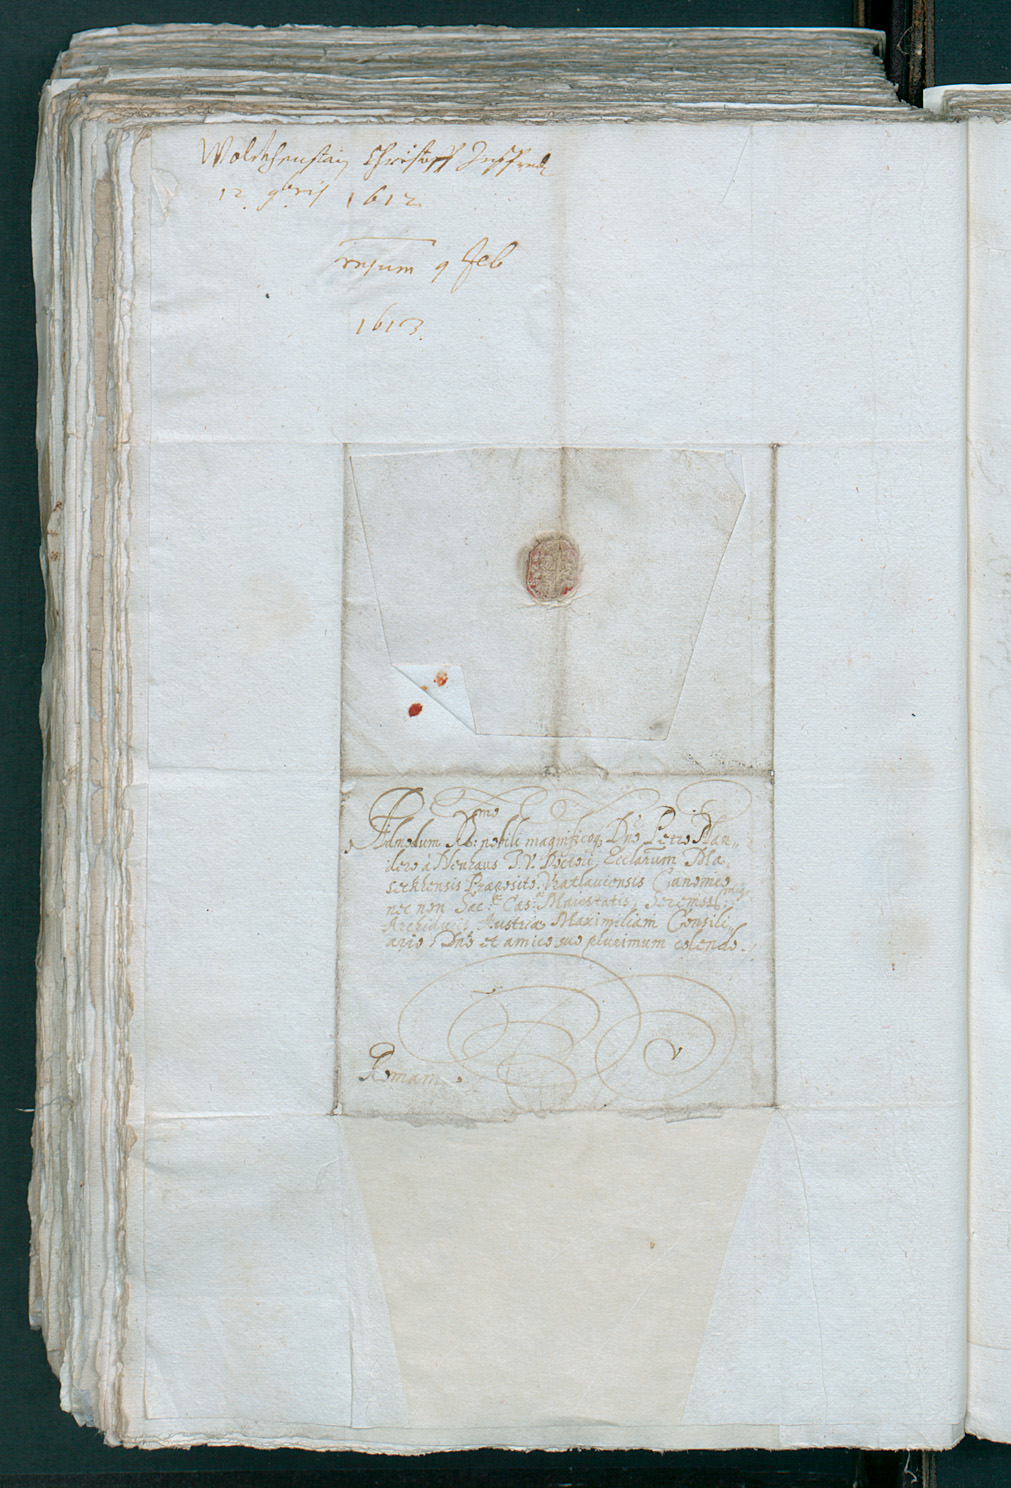 Wolkhenstain Christoff
12 9bris 1612
resum 9 Feb
1613
Admodum Rdo: nobili magnificoq; Dno Petro Man„
dero à Neuhaus I. V. Doctori, Ecclarum Ma„
serkhensis Præposito, Vratlauiensis Canonico
nec non Sac: Cæs: Maiestatis, Serenissmi:
Archiducis Austriæ Maximiliani Consili„
ario, Dno et amico suo plurimum colendo.
Romam.